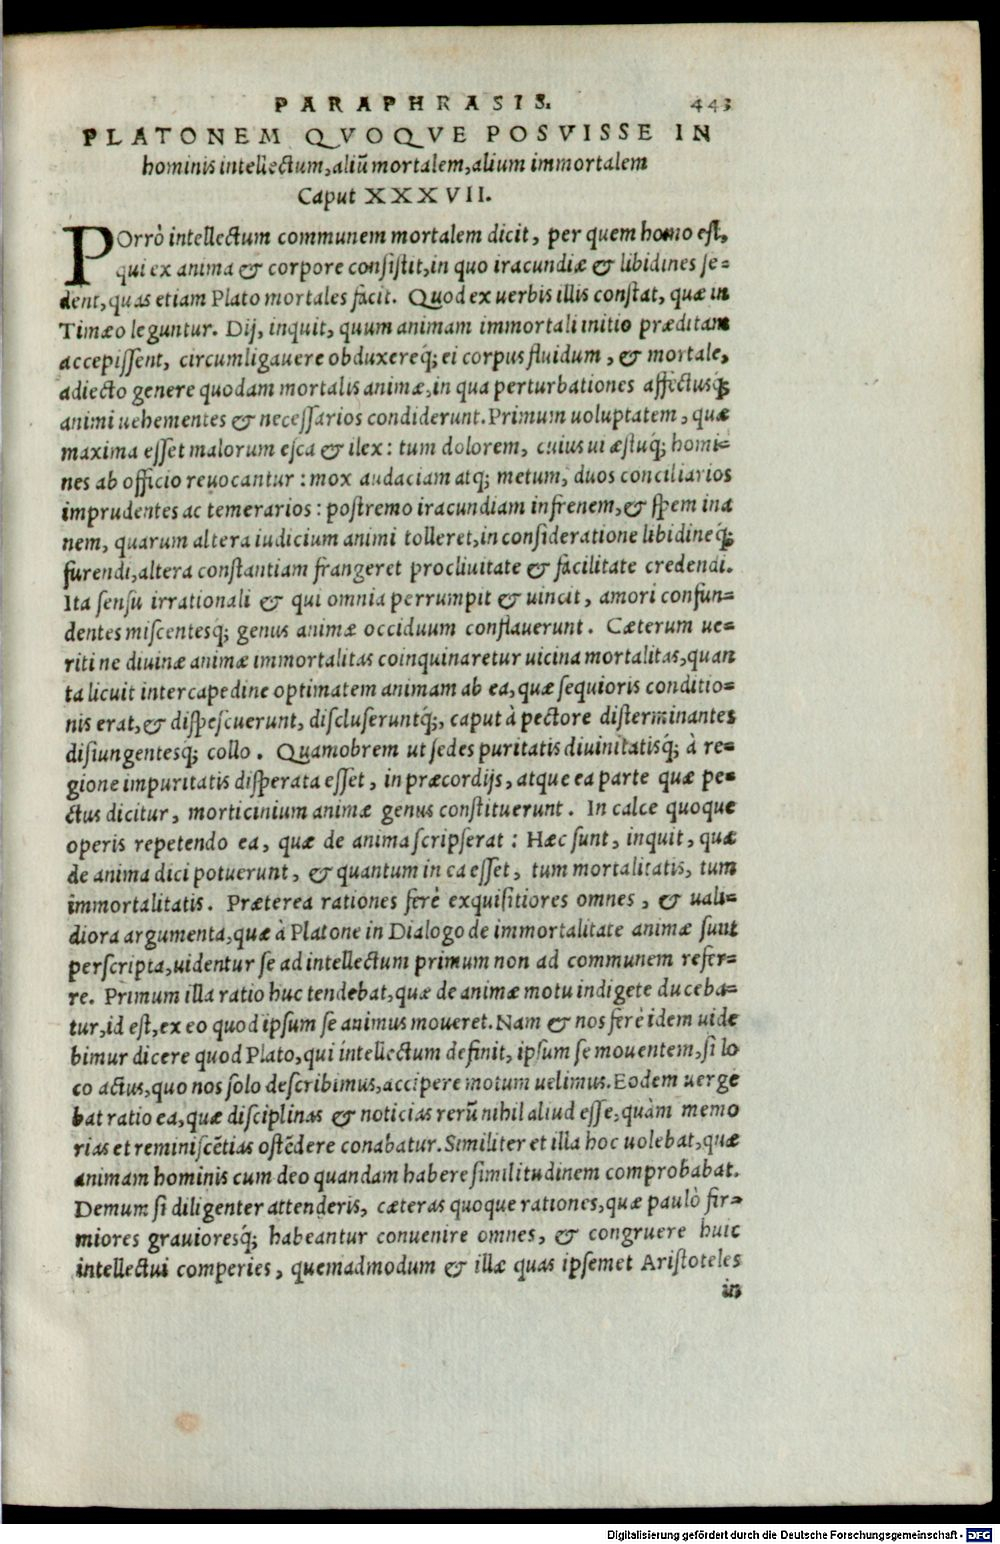 PARAPHRASIS. 443
PLATONEM QVOQVE POSVISSE IN
hominis intellectum, aliū mortalem, alium immortalem
Caput XXXVII.
POrrò intellectum communem mortalem dicit, per quem homo est,
qui ex anima & corpore consistit, in quo iracundiæ & libidines se=
dent, quas etiam Plato mortales facit. Quod ex uerbis illis constat, quæ in
Timæo leguntur. Dij, inquit, quum animam immortali initio præditam
accepissent, circumligauere obduxereq́; ei corpus fluidum, & mortale,
adiecto genere quodam mortalis animæ, in qua perturbationes affectusq́;
animi uehementes & necessarios condiderunt. Primum uoluptatem, quæ
maxima esset malorum esca & ilex: tum dolorem, cuius ui æstuq́; homi=
nes ab officio reuocantur: mox audaciam atq; metum, duos conciliarios
imprudentes ac temerarios: postremo iracundiam infrenem, & spem ina
nem, quarum altera iudicium animi tolleret, in consideratione libidineq́;
furendi, altera constantiam frangeret procliuitate & facilitate credendi.
Ita sensu irrationali & qui omnia perrumpit & uincit, amori confun=
dentes miscentesq́; genus animæ occiduum conflauerunt. Cæterum ue=
riti ne diuinæ animæ immortalitas coinquinaretur uicina mortalitas, quan
ta licuit intercapedine optimatem animam ab ea, quæ sequioris conditio=
nis erat, & dispescuerunt, discluseruntq́;, caput à pectore disterminantes
disiungentesq́; collo. Quamobrem ut sedes puritatis diuinitatisq́; à re=
gione impuritatis disperata esset, in præcordijs, atque ea parte quæ pe=
ctus dicitur, morticinium animæ genus constituerunt. In calce quoque
operis repetendo ea, quæ de anima scripserat: Hæc sunt, inquit, quæ
de anima dici potuerunt, & quantum in ea esset, tum mortalitatis, tum
immortalitatis. Præterea rationes ferè exquisitiores omnes, & uali=
diora argumenta, quæ à Platone in Dialogo de immortalitate animæ sunt
perscripta, uidentur se ad intellectum primum non ad communem refer=
re. Primum illa ratio huc tendebat, quæ de animæ motu indigete duceba=
tur, id est, ex eo quod ipsum se animus moueret. Nam & nos ferè idem uide
bimur dicere quod Plato, qui intellectum definit, ipsum se mouentem, si lo
co actus, quo nos solo describimus, accipere motum uelimus. Eodem uerge
bat ratio ea, quæ disciplinas & noticias rerū nihil aliud esse, quàm memo
rias et reminiscētias ostēdere conabatur. Similiter et illa hoc uolebat, quæ
animam hominis cum deo quandam habere similitudinem comprobabat.
Demum si diligenter attenderis, cæteras quoque rationes, quæ paulò fir=
miores grauioresq́; habeantur conuenire omnes, & congruere huic
intellectui comperies, quemadmodum & illæ quas ipsemet Aristoteles
in
Digitalisierung gefördert durch die Deutsche Forschungsgemeinschaft - DFG